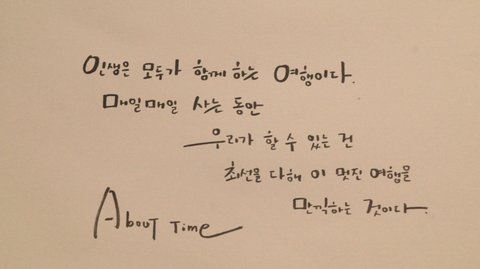 인생은 모두가 함께 하는 여행이다.
매일매일 사는 동안
우리가 할 수 있는 건
최선을 다해 이 멋진 여행을
만끽하는 것이다.
About Time